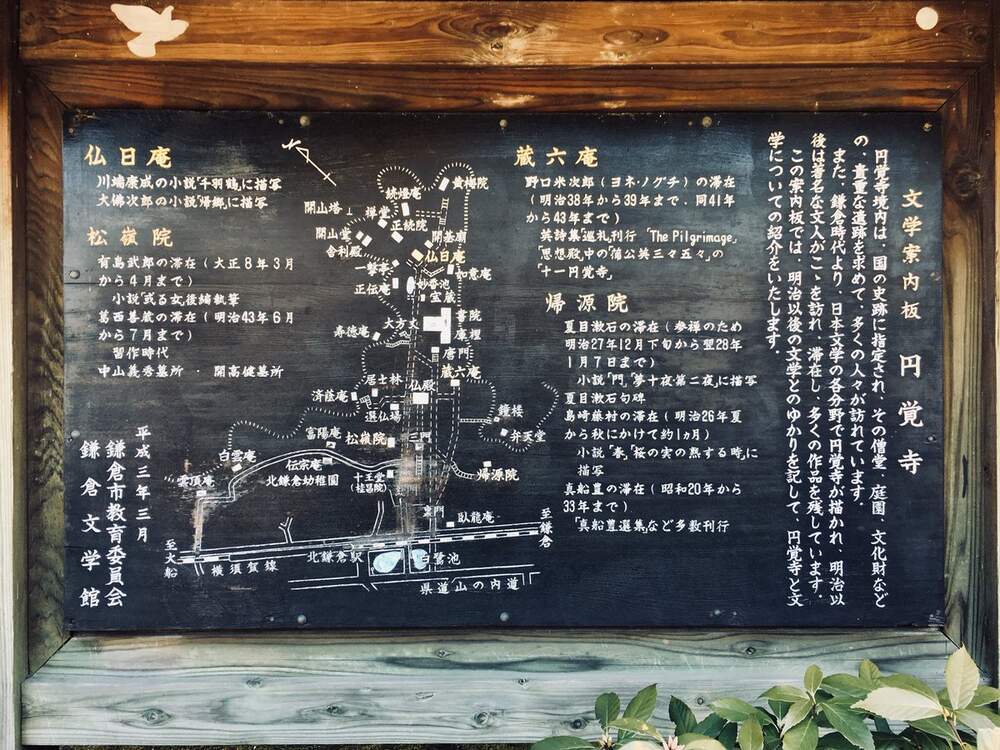 文学案内板 円覚寺
円覚寺境内は、国の史跡に指定され、その僧堂、庭園、文化財など
の、貴重な遺跡を求めて、多くの人々が訪れています。
また、鎌倉時代より、日本文学の各分野で円覚寺が描かれ、明治以
後は著名な文人がこゝを訪れ、滞在し、多くの作品を残しています。
この案内板では、明治以後の文学とのゆかりを記して、円覚寺と文
学についての紹介をいたします。
蔵六庵
野口米次郎(ヨネ・ノグチ)の滞在
(明治38年から39年まで、同41年
から43年まで)
英詩集巡礼刊行 「The Pilgrimage」
「思想殿」中の蒲公英三々五々」の
「十一円覚寺」
帰源院
夏目漱石の滞在(参禅のため
明治27年12月下旬から翌28年
1月7日まで)
小説「門」「夢十夜第二夜」に描写
夏目漱石句碑
島崎藤村の滞在(明治26年夏
から秋にかけて約1ヵ月)
小説「春」「桜の実の熟する時」に
描写
真船豊の滞在(昭和20年から
33年まで)
「真船豊選集」など多数刊行
仏日庵
川端康成の小説「千羽鶴」に描写
大佛次郎の小説「帰郷」に描写
松嶺院
有島武郎の滞在(大正8年3月
から4月まで)
小説「或る女」後編執筆
葛西善蔵の滞在(明治43年6月
から7月まで)
習作時代
中山義秀墓所・開高健墓所
続燈庵
黄梅院
開山塔
禅堂
正続院
開山堂
舎利殿
開基廟
仏日庵
一撃亭
如意庵
正伝庵
妙香池
宝蔵
書院
庫裡
大方丈
寿徳庵
唐門
蔵六庵
居士林
仏殿
済蔭庵
選仏場
鐘楼
弁天堂
富陽庵
松嶺院
三門
白雲庵
伝宗庵
帰源院
雲頂庵
北鎌倉幼稚園
十王堂
(桂昌院)
総門
臥龍庵
至鎌倉
至大船
横須賀線
北鎌倉駅
白鷺池
県道山の内道
平成三年三月
鎌倉市教育委員会
鎌倉文学館